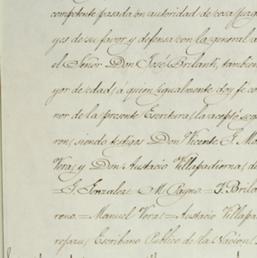 competente pasada en autoridad de cosa juzga
yes de su favor y defensa con la general a
el Señor Don José Brilanti, tambien
yor de edad, a quien igualmente doy fe cono
nor de la presente Escritura la acepta
ron; siendo testigos Don Vicente G. Ma
Veras y Don Austacio Villapadierna, de
= G. Gonzalez = M. Payno = J. Brila
= Manuel Veras = Austacio Villapa
Escribano Publico de la Nacion